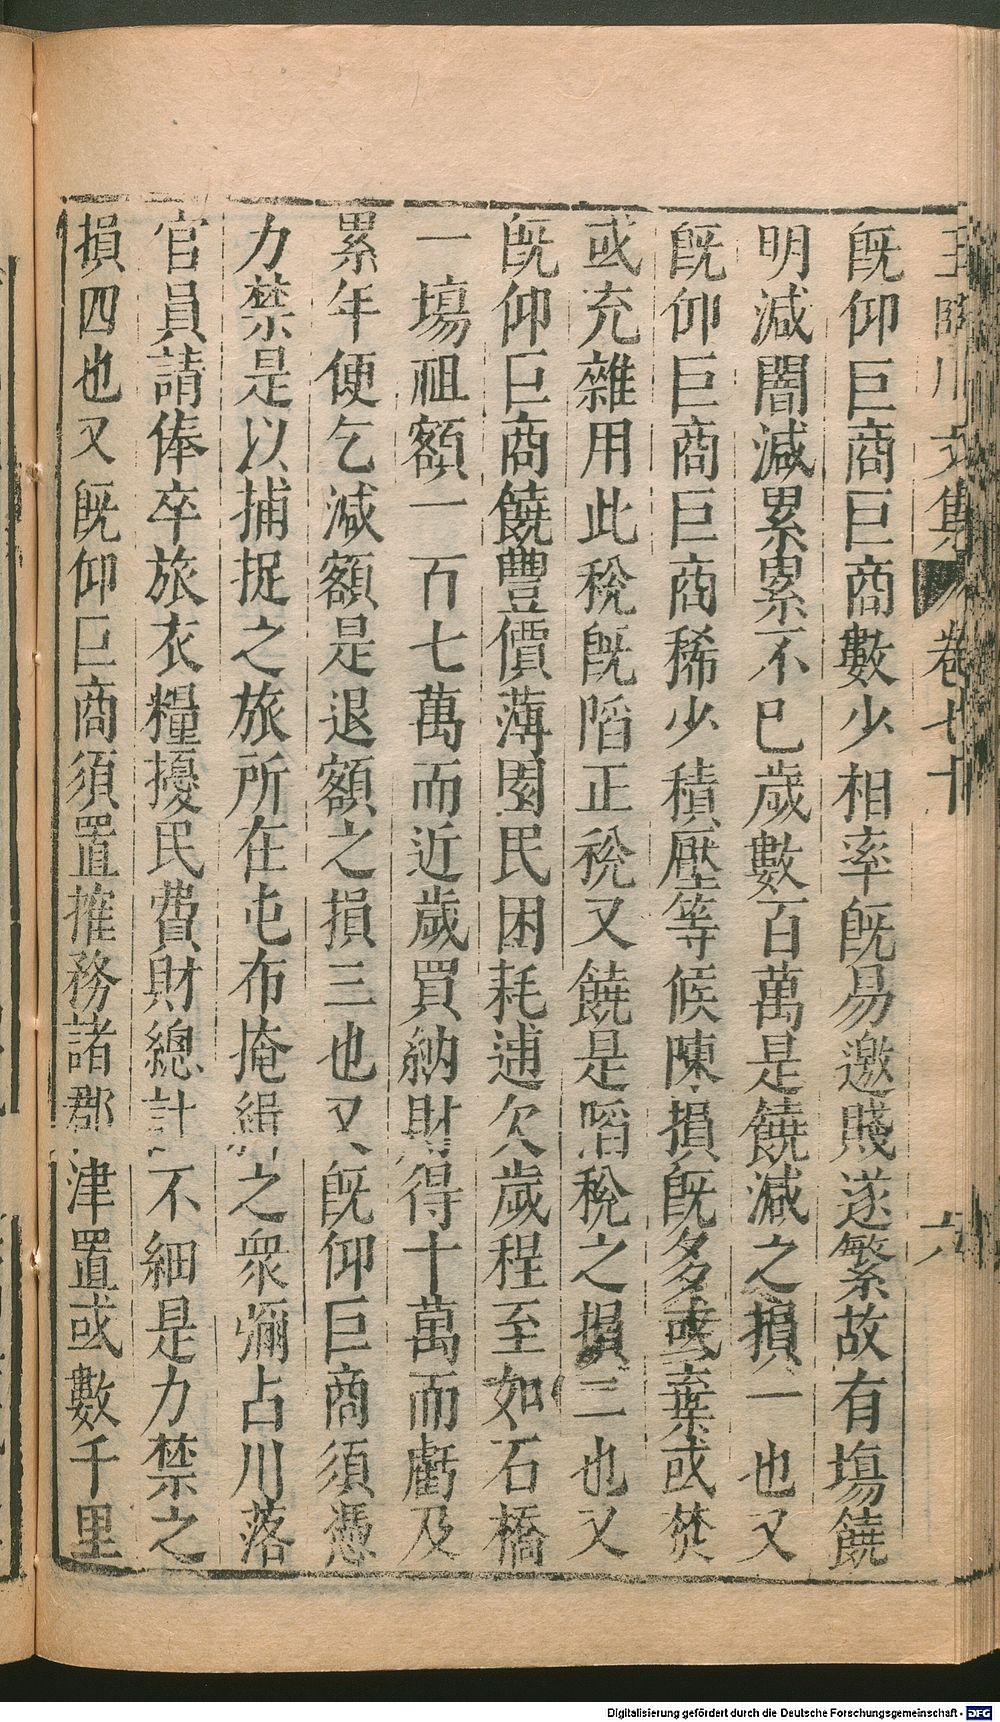 王臨川文集 卷七十 六
旣仰巨商巨商數少相率旣易邀賤遂繁故有塲饒
明減闇減累累不已歲數百萬是饒減之損一也又
旣仰巨商巨商稀少積壓等候陳損旣多或棄或焚
或充雜用此稅旣陷正稅又饒是陷稅之損二也又
旣仰巨商饒豐價薄園民困耗逋欠歲程至如石橋
一塲祖額一百七萬而近歲買納財得十萬而虧及
累年便乞減額是退額之損三也又旣仰巨商須憑
力禁是以捕捉之旅所在屯布掩緝之衆彌占川落
官員請俸卒旅衣糧擾民費財總計不細是力禁之
損四也又旣仰巨商須置搉務諸郡津置或數千里
Digitalisierung gefördert durch die Deutsche Forschungsgemeinschaft - DFG